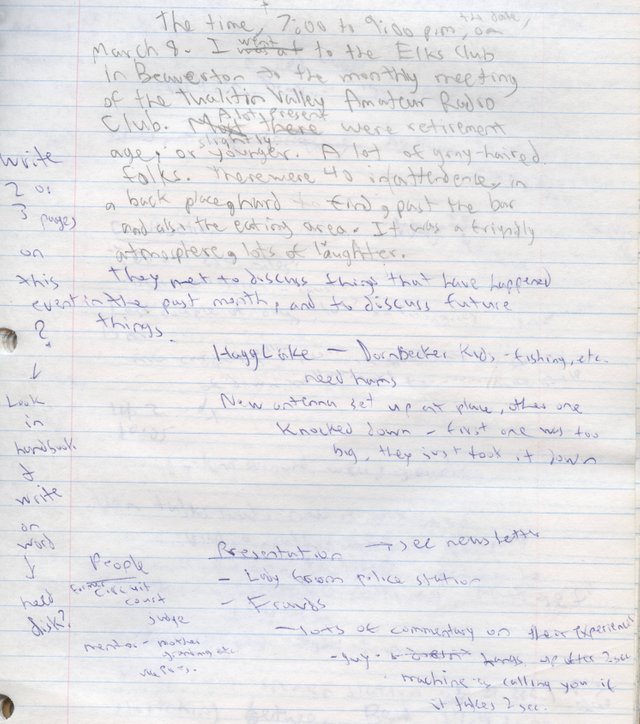 The time, 7:00 to 9:00 p.m., the date, on
March 8. I went to the Elks Club
in Beaverton to the monthly meeting
of the Tualitin Valley Amateur Radio
Club. A lot present were retirement
age, or slightly younger. A lot of gray-haired
folks. There were 40 in attendence, in
a back place hard to find, past the bar
and also the eating area. It was a friendly
atmosphere, lots of laughter.
They met to discuss things that have happened
in the past month, and to discuss future
things.
Hagg Lake — Dornbecker Kids - fishing, etc.
need hams
New antenna set up at place, other one
Knocked down - first one was too
big, they just took it down
Write
2 or
3 pages
on
this
event
?
↓
Look
in
handbook
&
write
on
word
↓
need
disk?
People
former circuit
court
judge
mentor - mother
Presentation → see newsletter
- Lady from police station
- Frauds
- lots of commentary on their experience
- guy hangs up after 2 sec
machine is calling you if
it takes 2 sec.